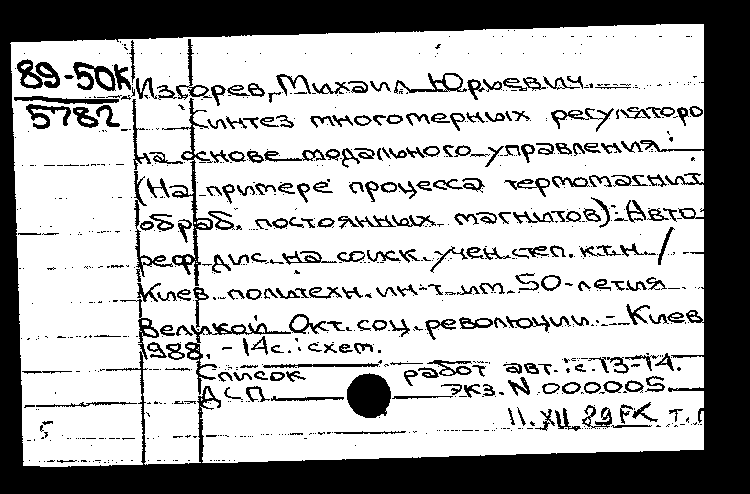 89-50к
5782
Изгорев, Михаил Юрьевич.
Синтез многомерных регуляторо
на основе модального управления:
(На примере процесса термомагнит
обраб. постоянных магнитов): Авто-
реф. дис. на соиск. учен. степ. к.т.н. /
Киев. политехн. ин-т им. 50-летия
Великой Окт. соц. революции. - Киев
1988. - 14с.: схем.
Список работ авт.: с.13-14.
ДСП. экз. N 000005.
5 11.XII.89 РК т.